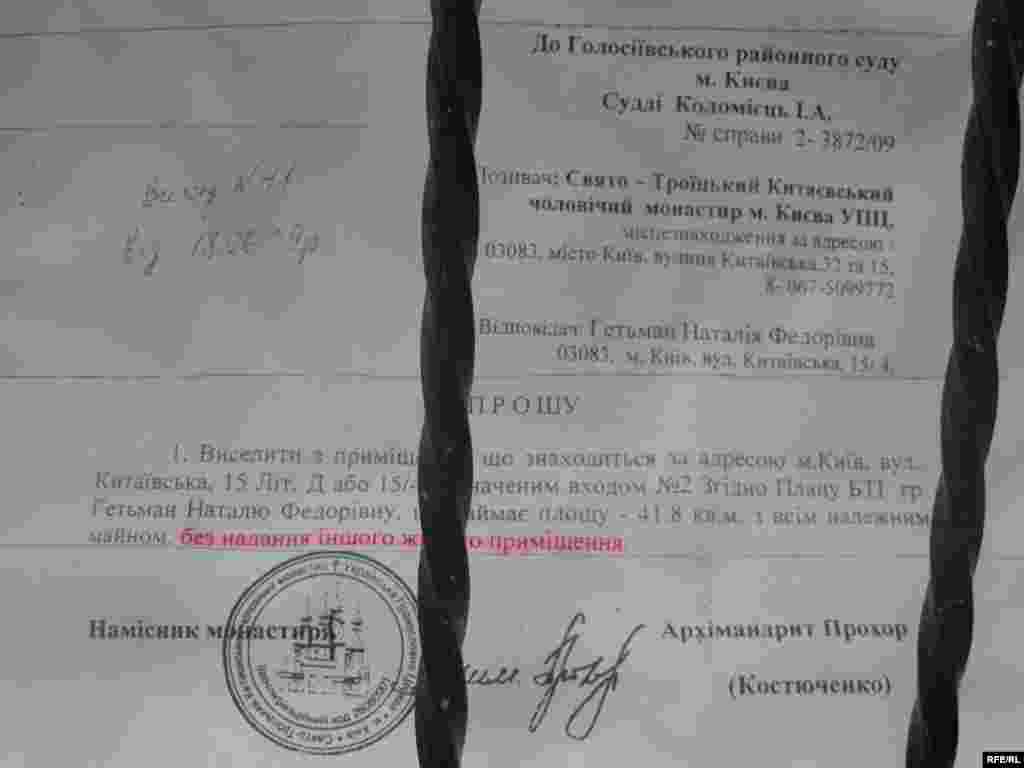 До Голосіївського районного суду
м. Києва
Судді Коломієць І.А.
№ справи 2- 3872/09
Позивач: Свято – Троїцький Китаєвський
чоловічий монастир м. Києва УПЦ,
місцезнаходження за адресою :
03083, місто Київ, вулиця Китаївська,32 та 15,
8- 067-5099772
Відповідач: Гетьман Наталія Федорівна
03083, м. Київ, вул. Китаївська, 15/ 4,
ПРОШУ
1. Виселити з що знаходиться за адресою м.Київ, вул.
Китаївська, 15 Літ. Д або 15/ входом №2 Згідно Плану БТІ гр.
Гетьман Наталю Федорівну, площу - 41.8 кв.м. з всім належним
майном, без надання іншого приміщення
Намісник монастиря
Архімандрит Прохор
(Костюченко)
RFE/RL